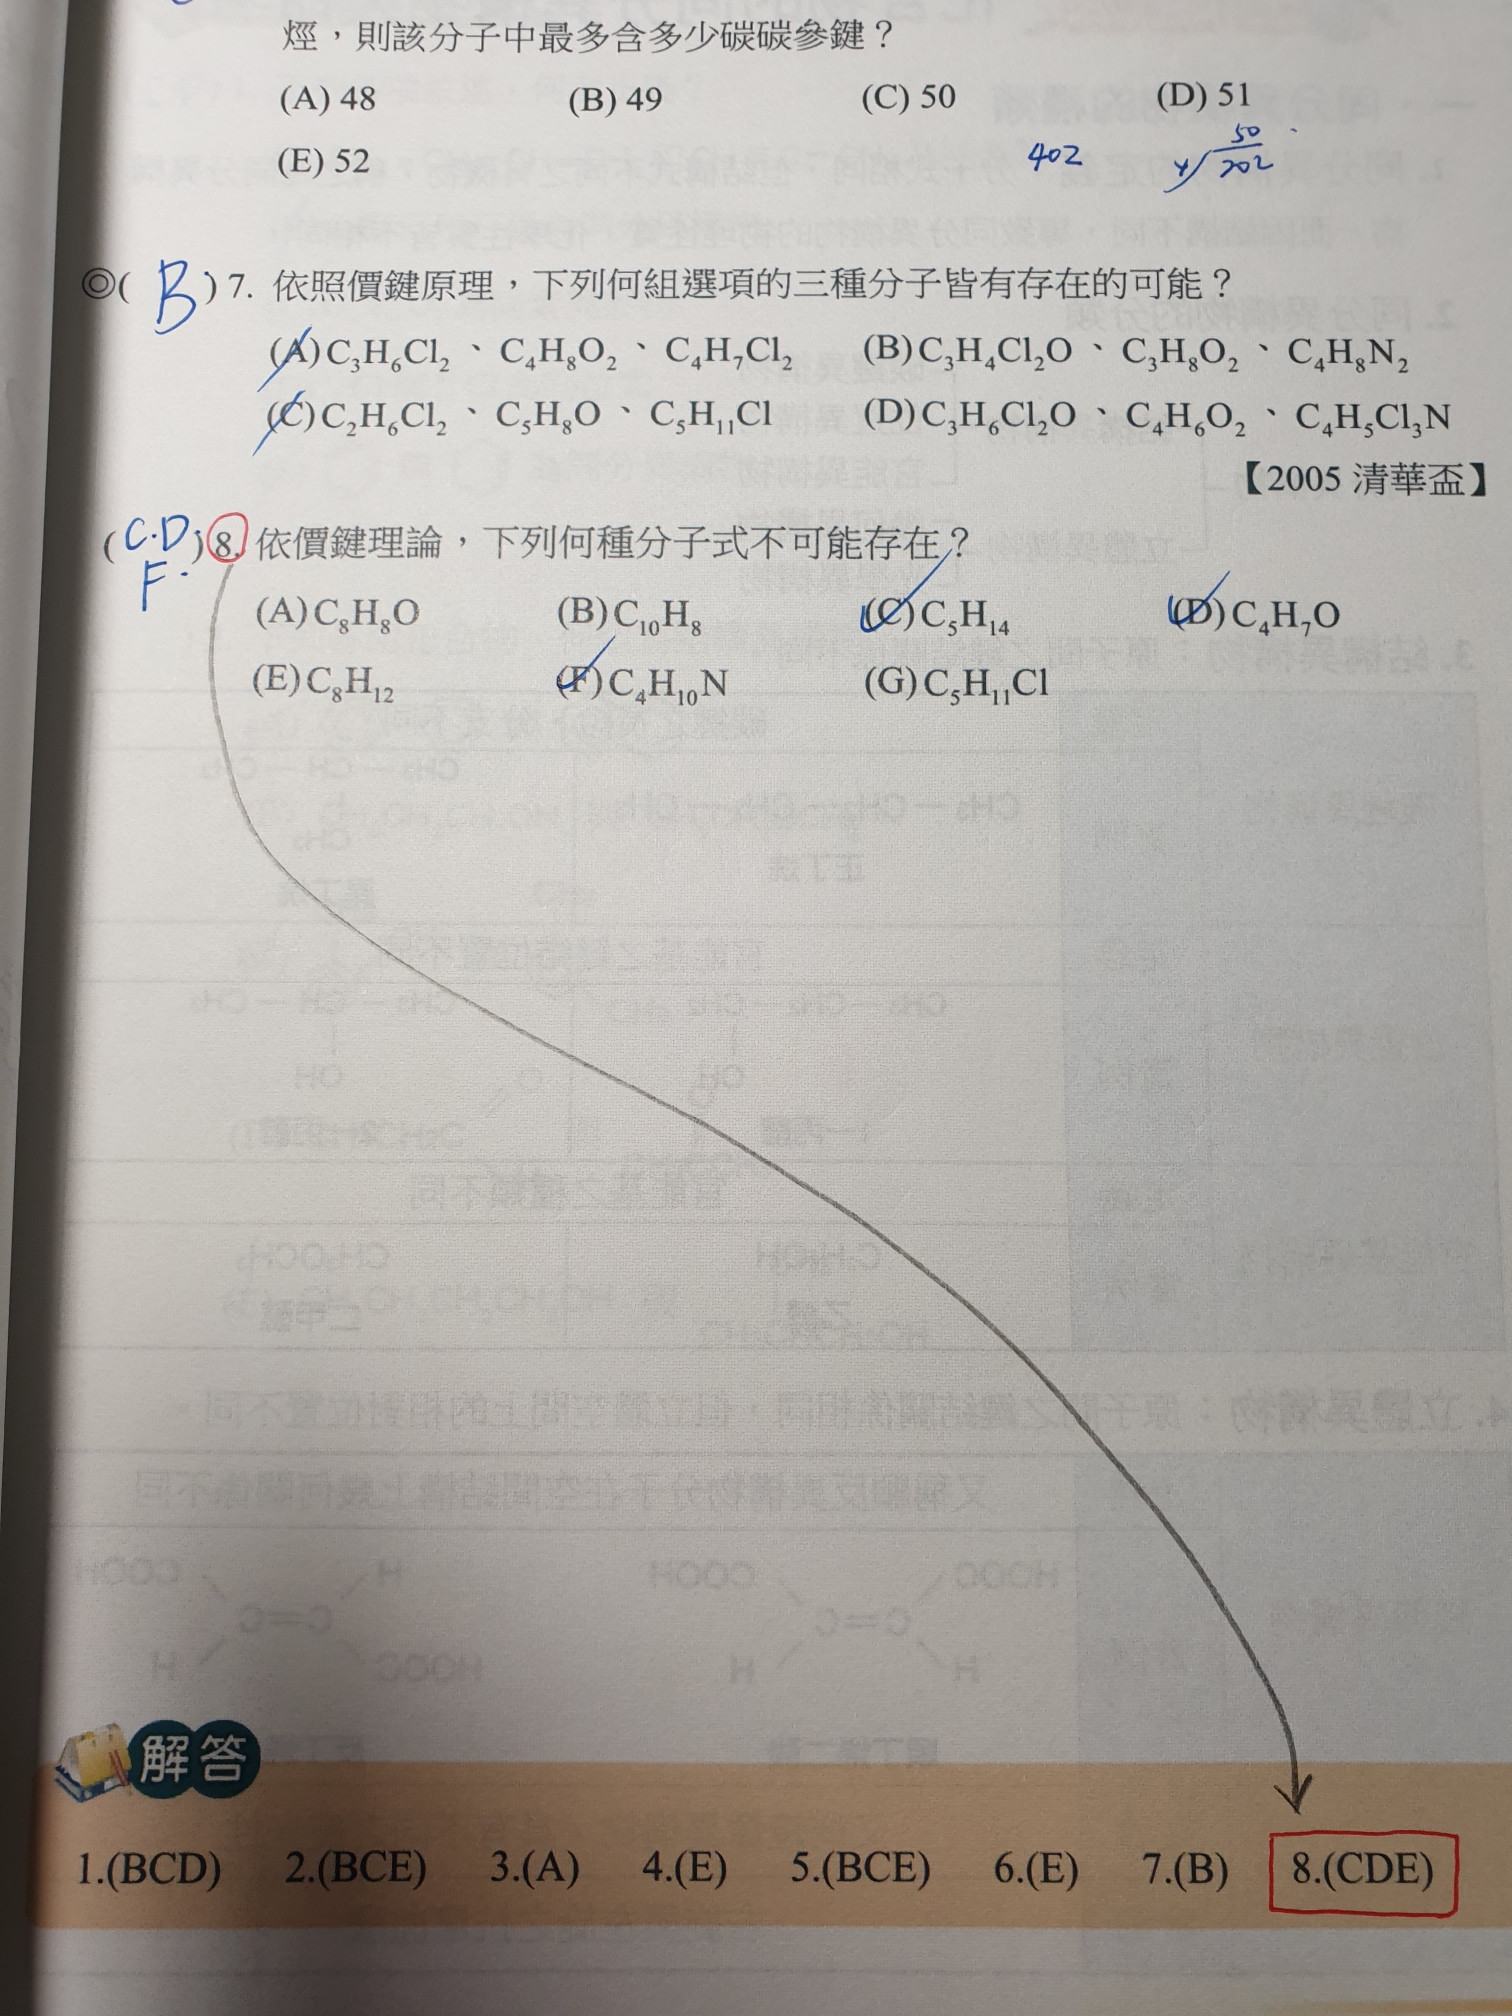 烴，則該分子中最多含多少碳碳參鍵？
(A) 48 (B) 49 (C) 50 (D) 51
(E) 52 402 4 50 202
◎( B ) 7. 依照價鍵原理，下列何組選項的三種分子皆有存在的可能？
(A) C₃H₆Cl₂、C₄H₈O₂、C₄H₇Cl₂ (B) C₃H₄Cl₂O、C₃H₈O₂、C₄H₈N₂
(C) C₂H₆Cl₂、C₅H₈O、C₅H₁₁Cl (D) C₃H₆Cl₂O、C₄H₆O₂、C₄H₅Cl₃N
【2005 清華盃】
( C.D F. ) 8. 依價鍵理論，下列何種分子式不可能存在？
(A) C₈H₈O (B) C₁₀H₈ (C) C₅H₁₄ (D) C₄H₇O
(E) C₈H₁₂ (F) C₄H₁₀N (G) C₅H₁₁Cl
解答
1.(BCD) 2.(BCE) 3.(A) 4.(E) 5.(BCE) 6.(E) 7.(B) 8.(CDE)